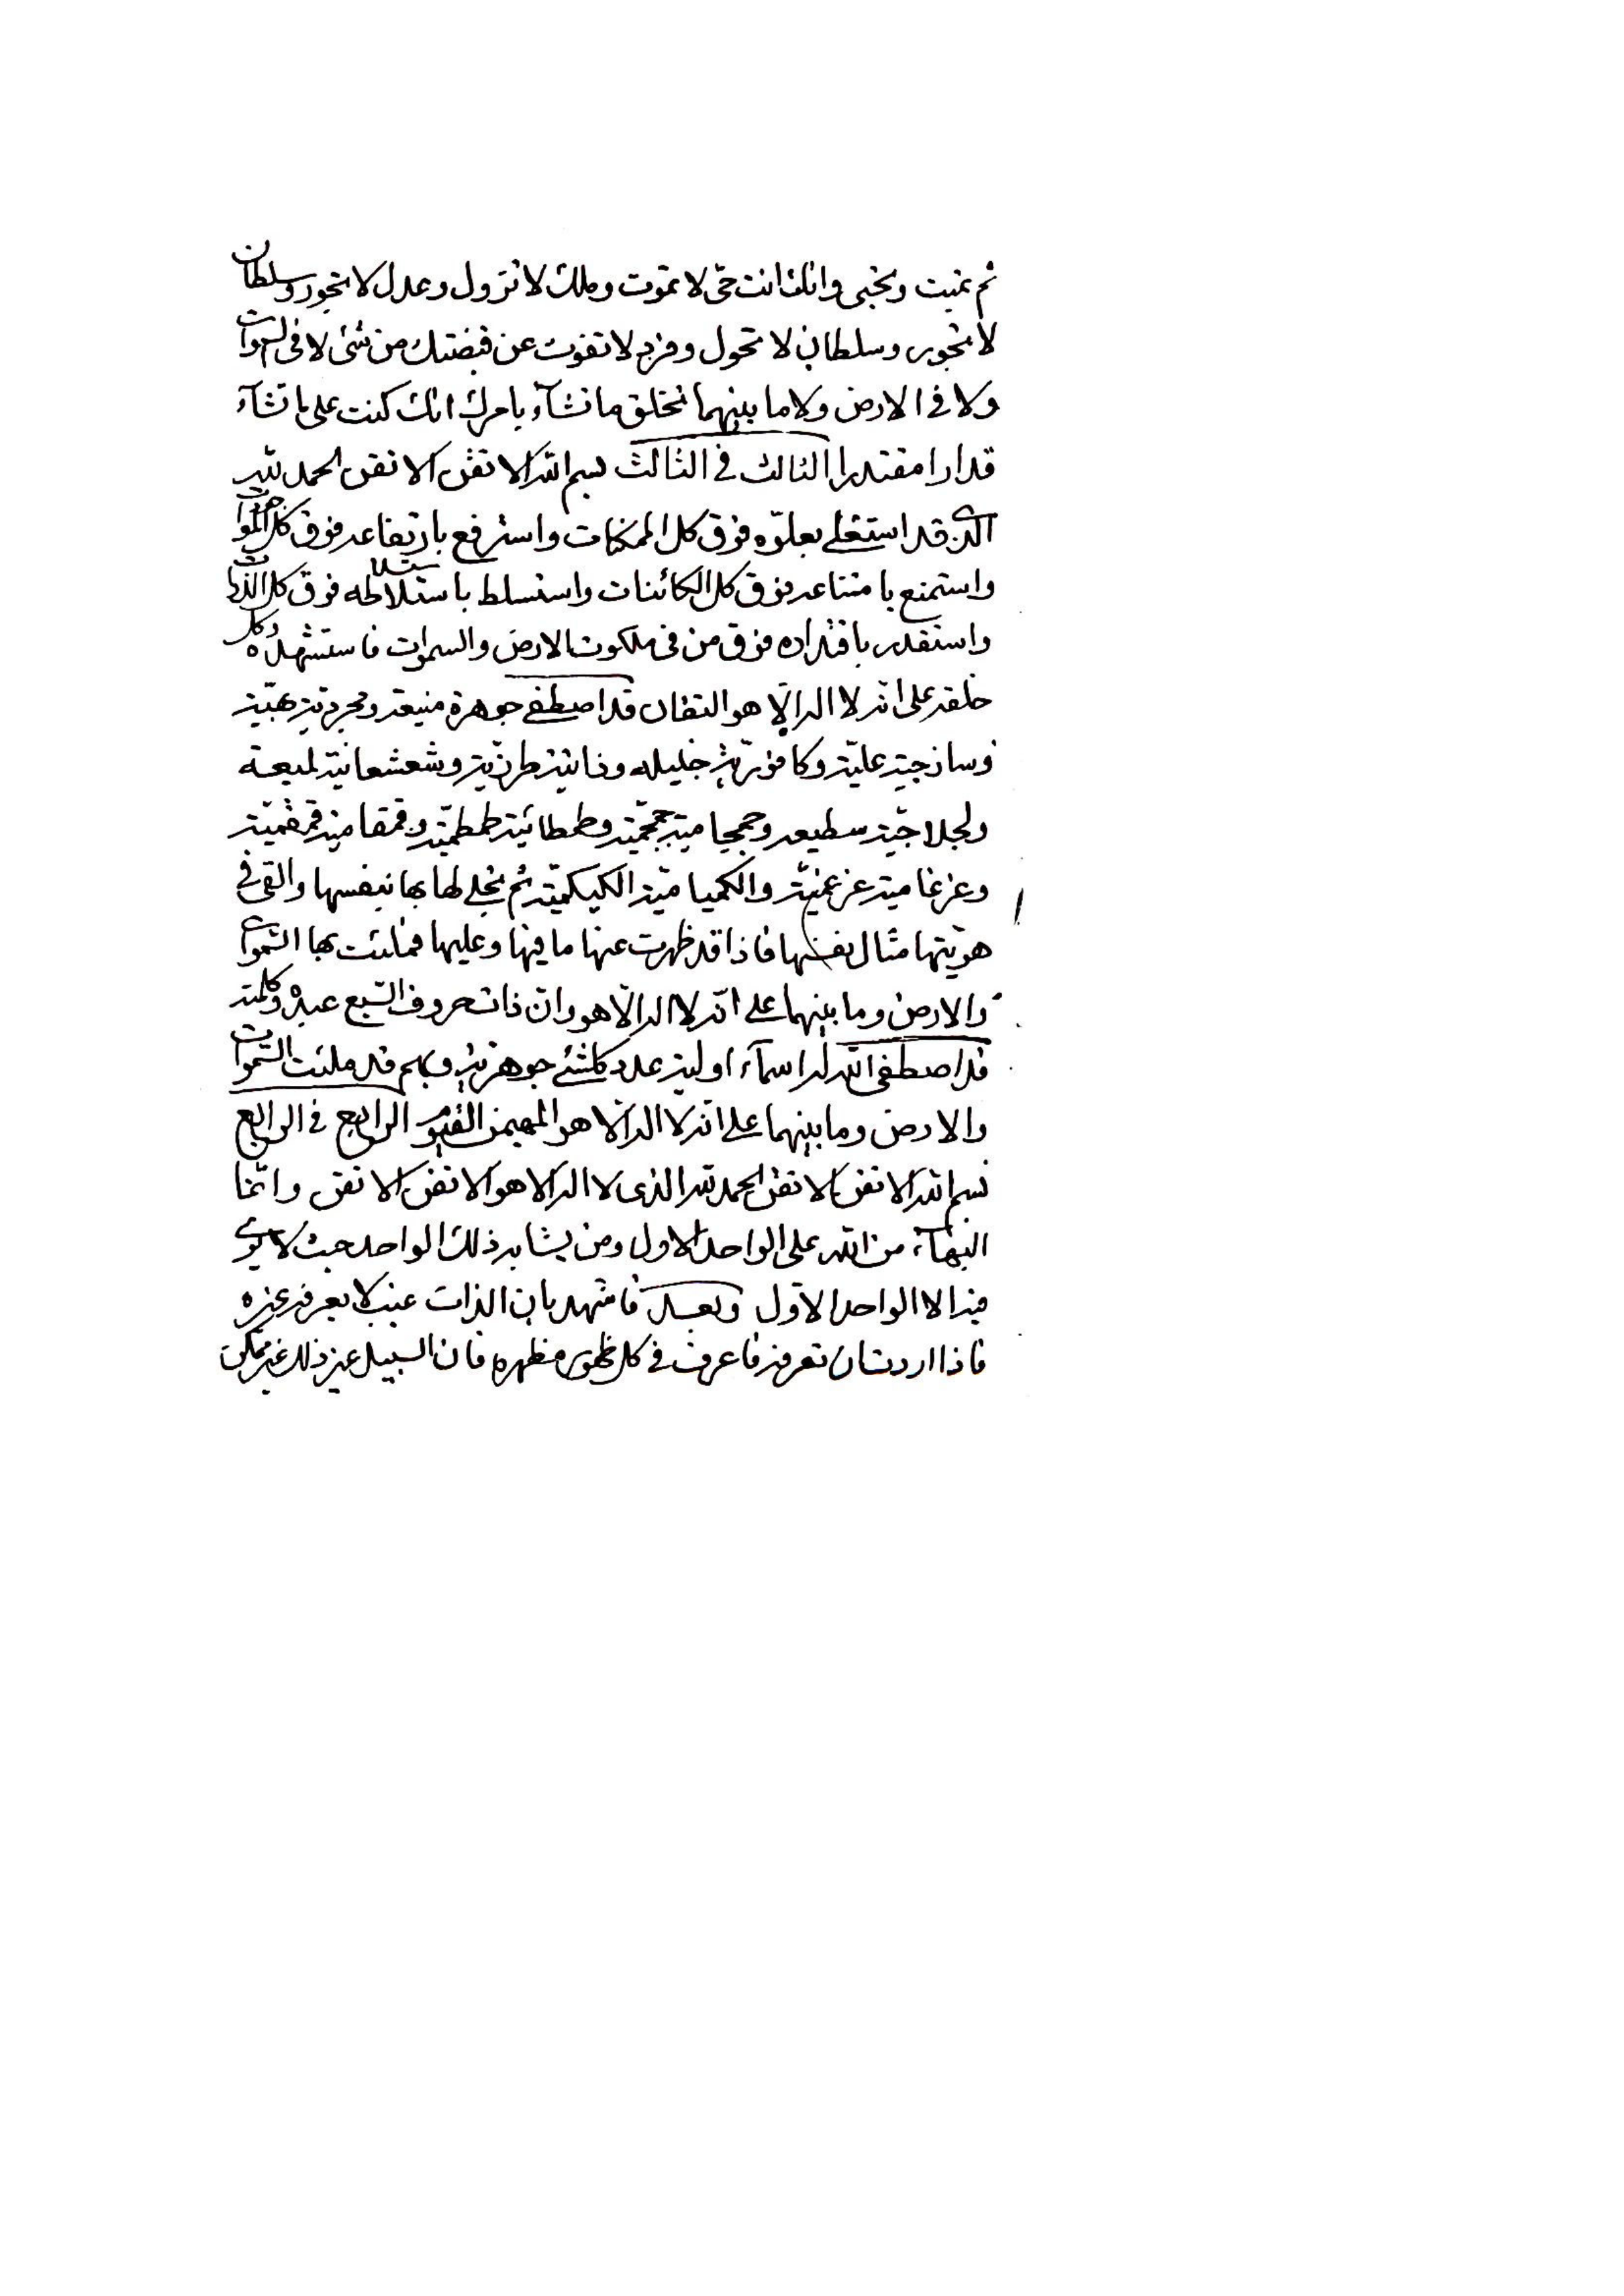 ثم تميت وتحيى وانك انت حى لا تموت وملك لا تزول وعدل لا تجور وسلطان
لا تجور وسلطان لا تحول وفرد لا تفوت عن قبضتك من شئ لا فى السموات
ولا فى الارض ولا ما بينهما تخلق ما تشآء بامرك انك كنت على ما تشآء
قدارا مقتدرا الثالث فى الثالث بسم الله الاتقن الاتقن الحمد لله
الذى قد استعلى بعلوّه فوق كل الممكنات واسترفع بارتفاعه فوق كل الموجودات
واستمنع بامتناعه فوق كل الكائنات واستسلط باستلاطه فوق كل الذرات
واستقدر باقتداره فوق من فى ملكوت الارض والسموات فاستشهده وكل
خلقه على انه لا اله الّا هو التقان قد اصطفى جوهرة منيعة ومجردية بهيّة
وساذجية عليّة وكافوريّة جليله وذاتية طرزيّة وشعشعانية لميعة
ولجلاجيّة سطيعه وجمجامية جمجميّة وطمطائية طمطميّة وقمقامية قمقميّة
وعزعامية عزعميّة والكميامية الكيكميّة ثم تجلى لها بها بنفسها والقى فى
هويتها مثال نفسها فاذا قد ظهرت عنها ما فيها وعليها فملئت بها السموات
والارض وما بينهما على انّه لا اله الّا هو وان ذات حروف السّبع عبده وكلمته
قد اصطفى الله له اسمآء اولية عدد كلشئ جوهرية وبهم قد ملئت السموات
والارض وما بينهما على انه لا اله الا هو المهيمن القيوم الرابع فى الرابع
بسم الله الاتقن الاتقن الحمد لله الذى لا اله الا هو الاتقن الاتقن وانما
البهآء من الله على الواحد الاول ومن يشابه ذلك الواحد حيث لا يرى
فيه الا الواحد الاول وبعد فاشهد بان الذات غيب لا يعرفه غيره
فاذا اردت ان تعرفه فاعرف فى كل ظهور مظهره فان السبيل غير ذلك غير ممكن